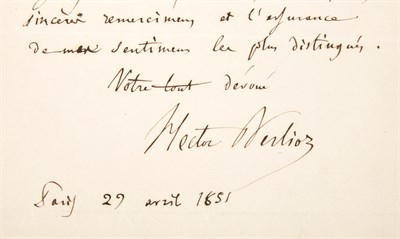 sincères remercimens et l'assurance
de mes sentimens les plus distingués.
Votre tout dévoué
Hector Berlioz
Paris 29 avril 1851